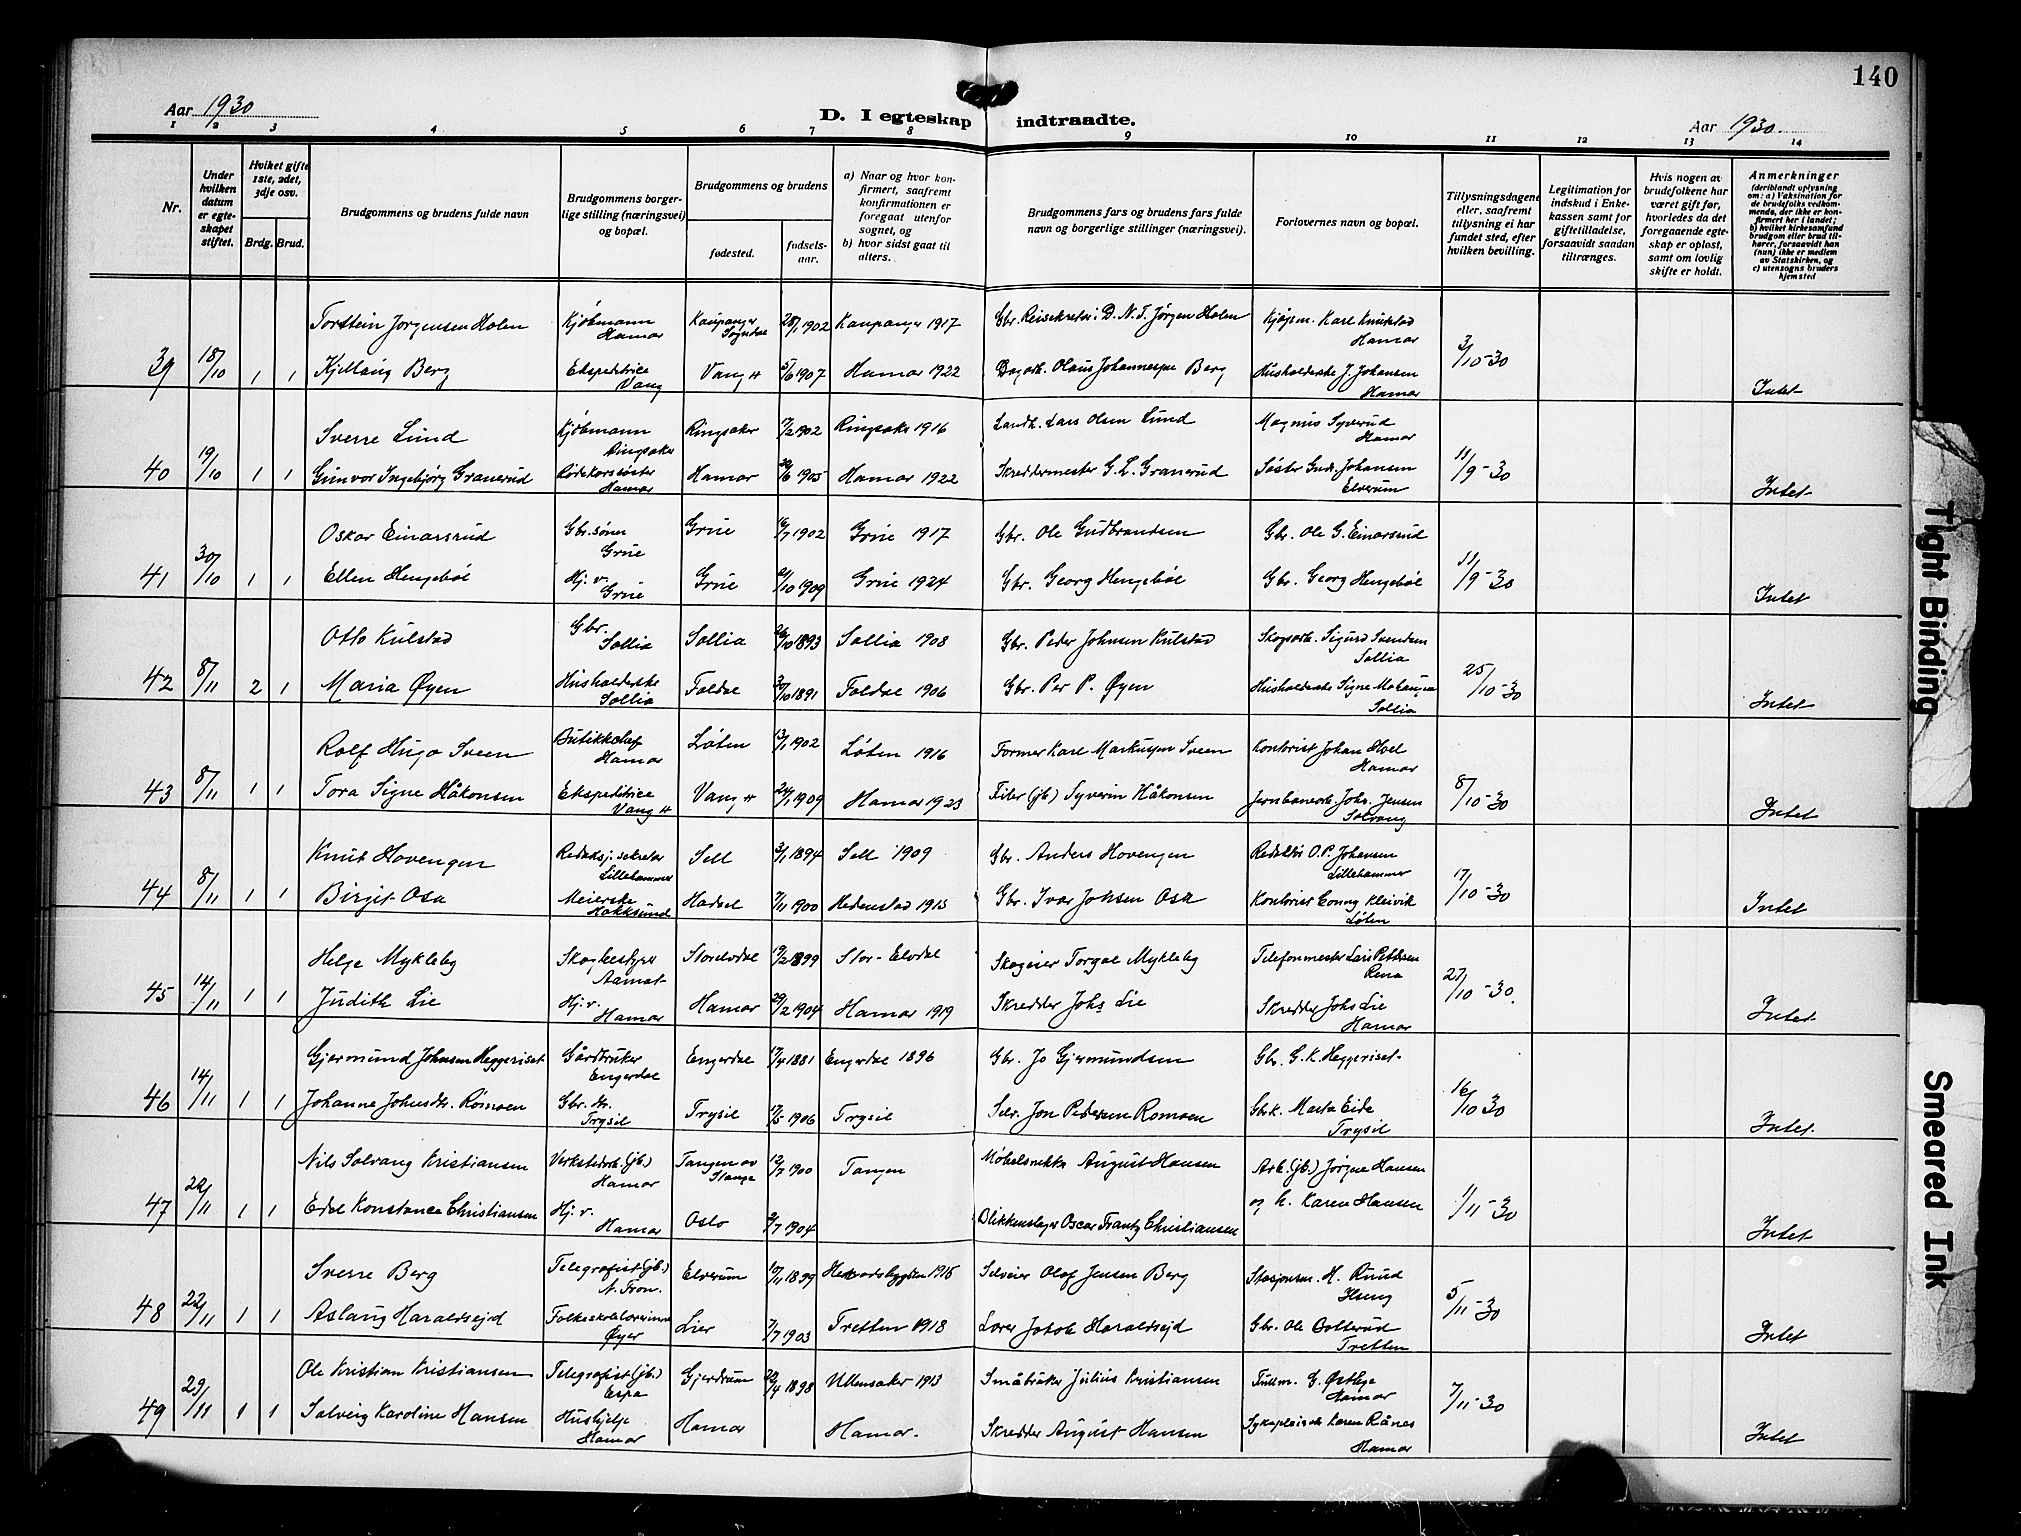 140
Aar 1930
D. I egteskap indtraadte.
Aar 1930.
1 2 3 4 5 6 7 8 9 10 11 12 13 14
Nr.
Under hvilken datum er egte-skapet stiftet.
Hviket gifte 1ste, 2det, 3dje osv.
Brdg. Brud.
Brudgommens og brudens fulde navn
Brudgommens borger-lige stilling (næringsvei) og bopæl.
Brudgommens og brudens
fødested.
fødsels-aar.
a) Naar og hvor kon-firmert, saafremt konfirmationen er foregaat utenfor sognet, og
b) hvor sidst gaat til alters.
Brudgommens fars og brudens fars fulde navn og borgerlige stillinger (næringsvei).
Forlovernes navn og bopæl.
Tillysningsdagene eller, saafremt tillysning ei har fundet sted, efter hvilken bevilling.
Legitimation for indskud i Enke-kassen samt for giftetilladelse, forsaavidt saadan tiltrænges.
Hvis nogen av brudefolkene har været gift før, hvorledes da det foregaaende egte-skap er opløst, samt om lovlig skifte er holdt.
Anmerkninger
(deriblandt oplysning om: a) Vaksination for de brudefolks vedkom-mende, der ikke er kon-firmert her i landet; b) hvilket kirkesamfund brudgom eller brud til-hører, forsaavidt han (hun) ikke er medlem av Statskirken, og c) utensogns bruders hjemsted
39 18/10 1 1
Torstein Jørgensen Holen Kjøbmann Hamar Kaupanger Sogndal 28/1 1902 Kaupanger 1917 Gbr. Reisekretær i D.N.T. Jørgen Holen Kjøpm. Karl Knutstad Hamar 3/10-30
Kjellaug Berg Ekspeditrice Vang Vang H 5/6 1907 Hamar 1922 Dagarb. Olaus Johannessen Berg Husholderske J. Johansen Hamar Intet
40 19/10 1 1
Sverre Lund Kjøbmann Ringsaker Ringsaker 17/2 1902 Ringsaker 1916 Landh. Lars Olsen Lund Magnus Syverud Hamar 11/9-30
Gunvor Ingebjørg Granerud Rødekorssøster Hamar Hamar 29/6 1905 Hamar 1922 Skreddermester G. L. Granerud Søster Gudr. Johansen Elverum Intet
41 30/10 1 1
Oskar Einarsrud Gbr.sønn Grue Grue 16/7 1902 Grue 1917 Gbr. Ole Gudbrandsen Gbr. Ole G. Einarsrud 11/9-30
Ellen Hengebøl Hj. v. Grue Grue 21/10 1909 Grue 1924 Gbr. Georg Hengebøl Gbr. Georg Hengebøl Intet
42 8/11 2 1
Otto Kulstad Gbr. Sollia Sollia 26/10 1893 Sollia 1908 Gbr. Peder Johnsen Kulstad Skogsarb. Sigurd Svendsen Sollia 25/10-30
Maria Øyen Husholderske Sollia Foldal 30/10 1891 Foldal 1906 Gbr. Per P. Øyen Husholderske Signe Mohaugen Sollia Intet
43 8/11 1 1
Rolf Hugo Sveen Butikkchef Hamar Løten 13/1 1902 Løten 1916 Former Karl Markussen Sveen Kontorist Johan Hoel Hamar 8/10-30
Tora Signe Håkonsen Ekspeditrice Vang H Vang H 24/1 1909 Hamar 1923 Filer (jb) Syverin Håkonsen Jernbanearb. Johs. Jensen Solvang Intet
44 8/11 1 1
Knut Hovengen Redaksj. sekretær Lillehammer Sell 3/1 1894 Sell 1909 Gbr. Anders Hovengen Redaktør O. P. Johansen Lillehammer 17/10-30
Birgit Osa Meierske Hokksund Hadsel 7/11 1900 Hedenstad 1915 Gbr. Ivar Johsen Osa Kontorist Conny Kleivik Løten Intet
45 14/11 1 1
Helge Mykleby Skogbestyrer Aamot Storelvdal 19/2 1899 Stor-Elvdal Skogeier Torgal Mykleby Telefonmester Lars Pettersen Rena 27/10-30.
Judith Lie Hj. v. Hamar Hamar 29/2 1904 Hamar 1919 Skredder Johs Lie Skredder Johs Lie Hamar Intet
46 14/11 1 1
Gjermund Johnsen Heggeriset Gårdbruker Engerdal Engerdal 17/4 1881 Engerdal 1896 Gbr. Jo Gjermundsen Gbr. G. K. Heggeriset 16/10 30
Johanne Johnsdtr. Rømoen Gbr. dtr. Trysil Trysil 17/5 1906 Trysil Selv. Jon Pedersen Romoen Gbrk. Marta Eide Trysil Intet
47 22/11 1 1
Nils Solvang Kristiansen Verkstedarb. (jb.) Hamar Tangen av Stange 12/7 1900 Tangen Møbelsnekker August Hansen Arb. (jb.) Jørgen Hansen 1/11-30
Edel Konstance Christiansen Hj. v. Hamar Oslo 9/7 1904 Blikkenslager Oscar Frantz Christiansen og h. Karen Hansen Intet
48 22/11 1 1
Sverre Berg Telegrafist (jb.) N. Fron. Elverum 17/11 1899 Hernadsbygden 1915 Selveier Olaf Jensen Berg Stasjonsm. H. Ruud Ilseng 5/11-30
Aslaug Haraldseid Folkeskolelærerinne Øyer Lier 7/7 1903 Tretten 1918 Lærer Jakob Haraldseid Gbr. Ole Botterud Tretten Intet
49 29/11 1 1
Ole Kristian Kristiansen Telegrafist (jb.) Espa Gjerdrum 22/4 1898 Ullensaker 1913 Småbruker Julius Kristiansen Fullm. G. Østbye Hamar 7/11-30
Solveig Karoline Hansen Hushjelp Hamar Hamar Hamar. Skredder August Hansen Sykepleierske Karen Rånes Hamar Intet
Tight Binding
Smeared Ink